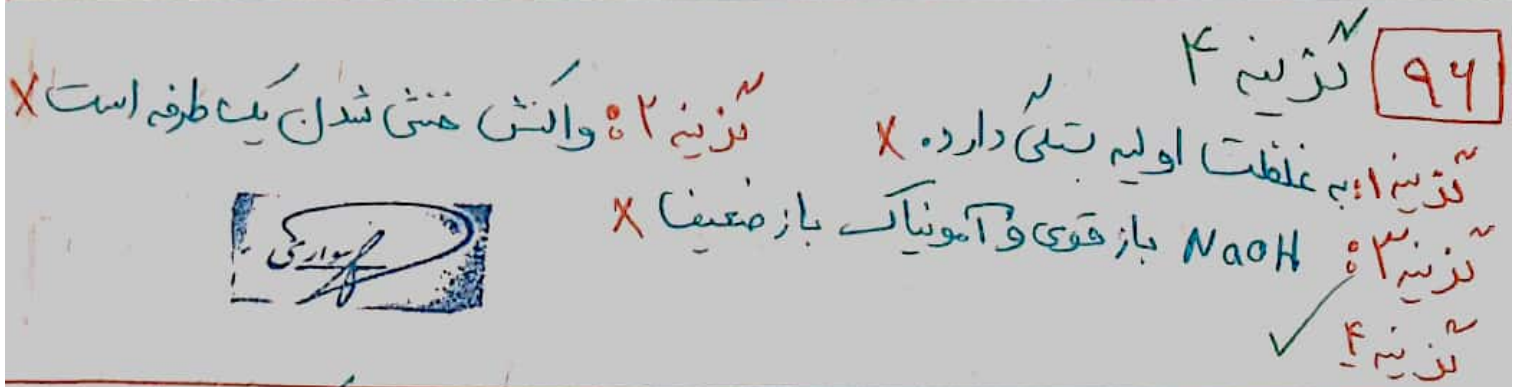 ۹۶ گزینه ۴
گزینه ۱: به غلظت اولیه بستگی دارد. X گزینه ۲: واکنش خنثی شدن یک طرفه است X
گزینه ۳: NaOH باز قوی و آمونیاک باز ضعیف X
گزینه ۴ ✓